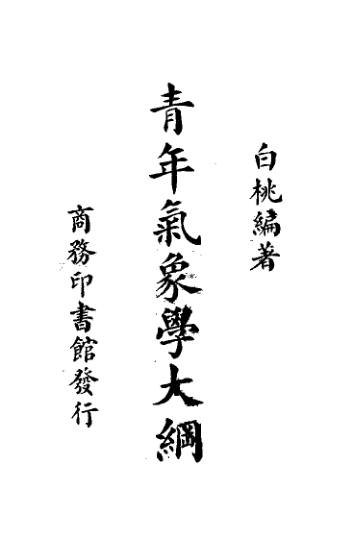 白桃編著
青年氣象學大綱
商務印書館發行